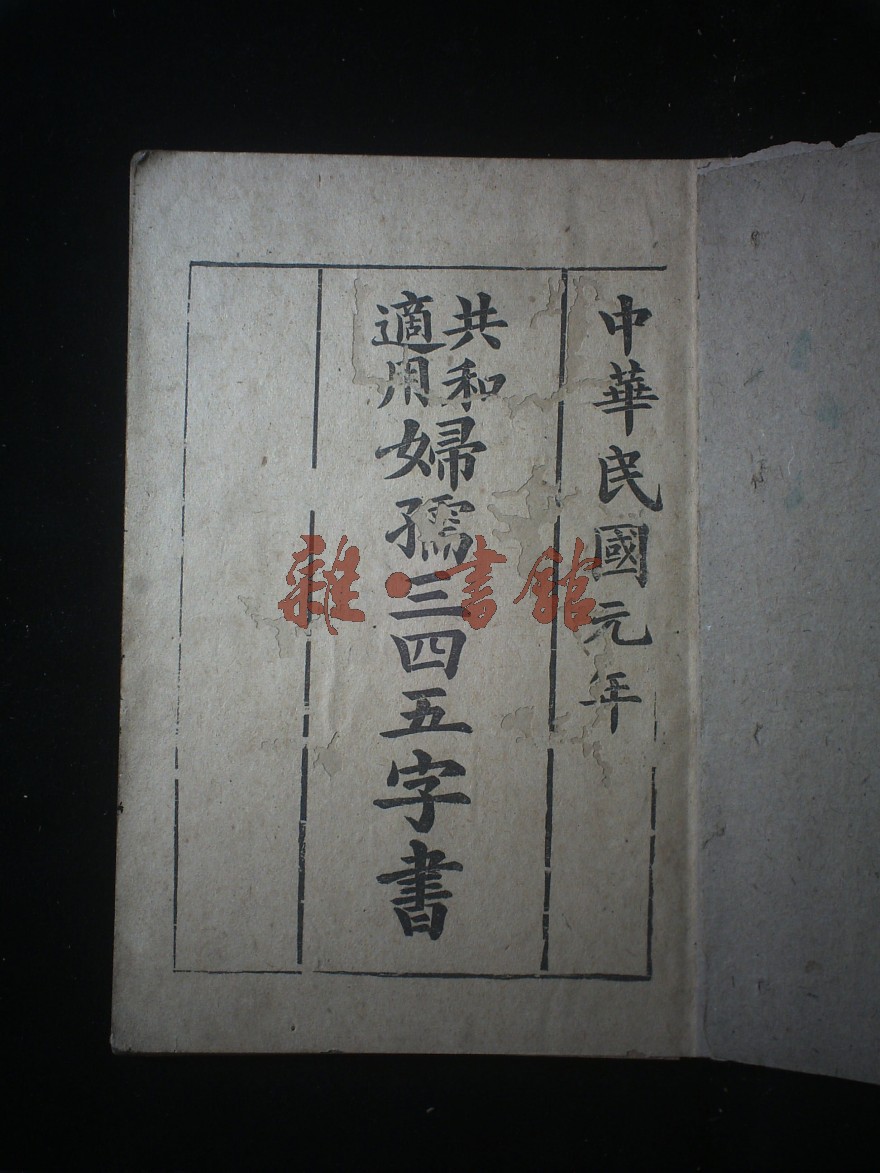 中華民國元年
共和
適用
婦孺三四五字書
雜·書館